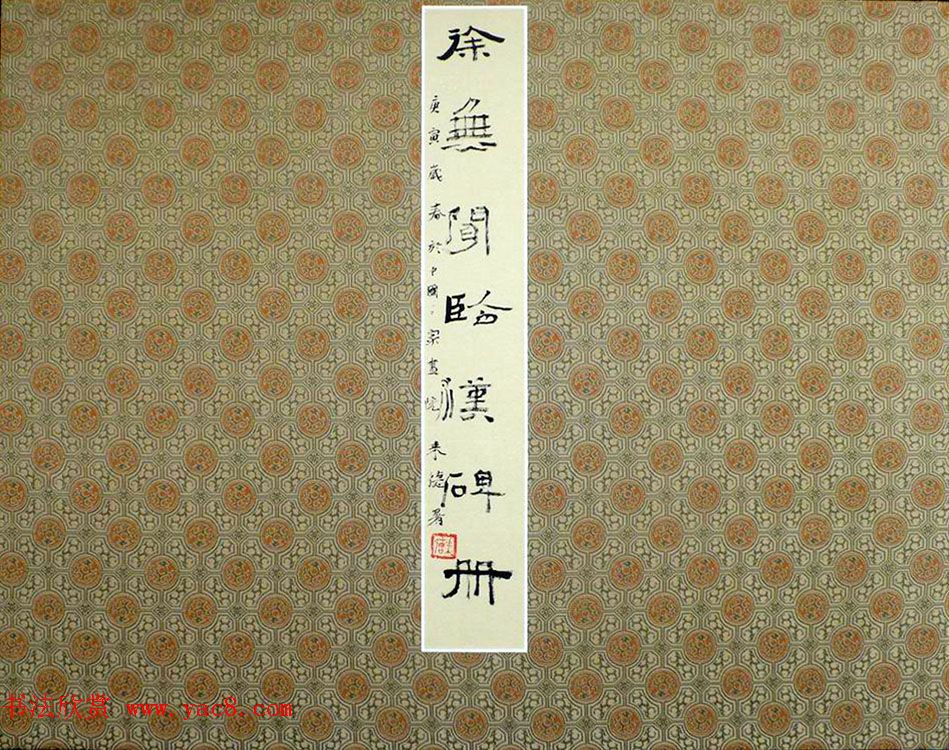 徐無聞臨漢碑冊
庚寅歲春於中國〻家畫院 署
书法欣赏 www.yac8.com